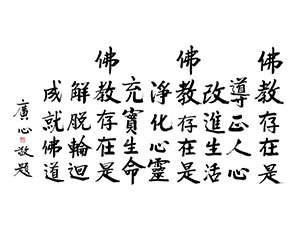 佛教存在是
導正人心
改進生活
佛教存在是
淨化心靈
充實生命
佛教存在是
解脫輪迴
成就佛道
廣心敬題